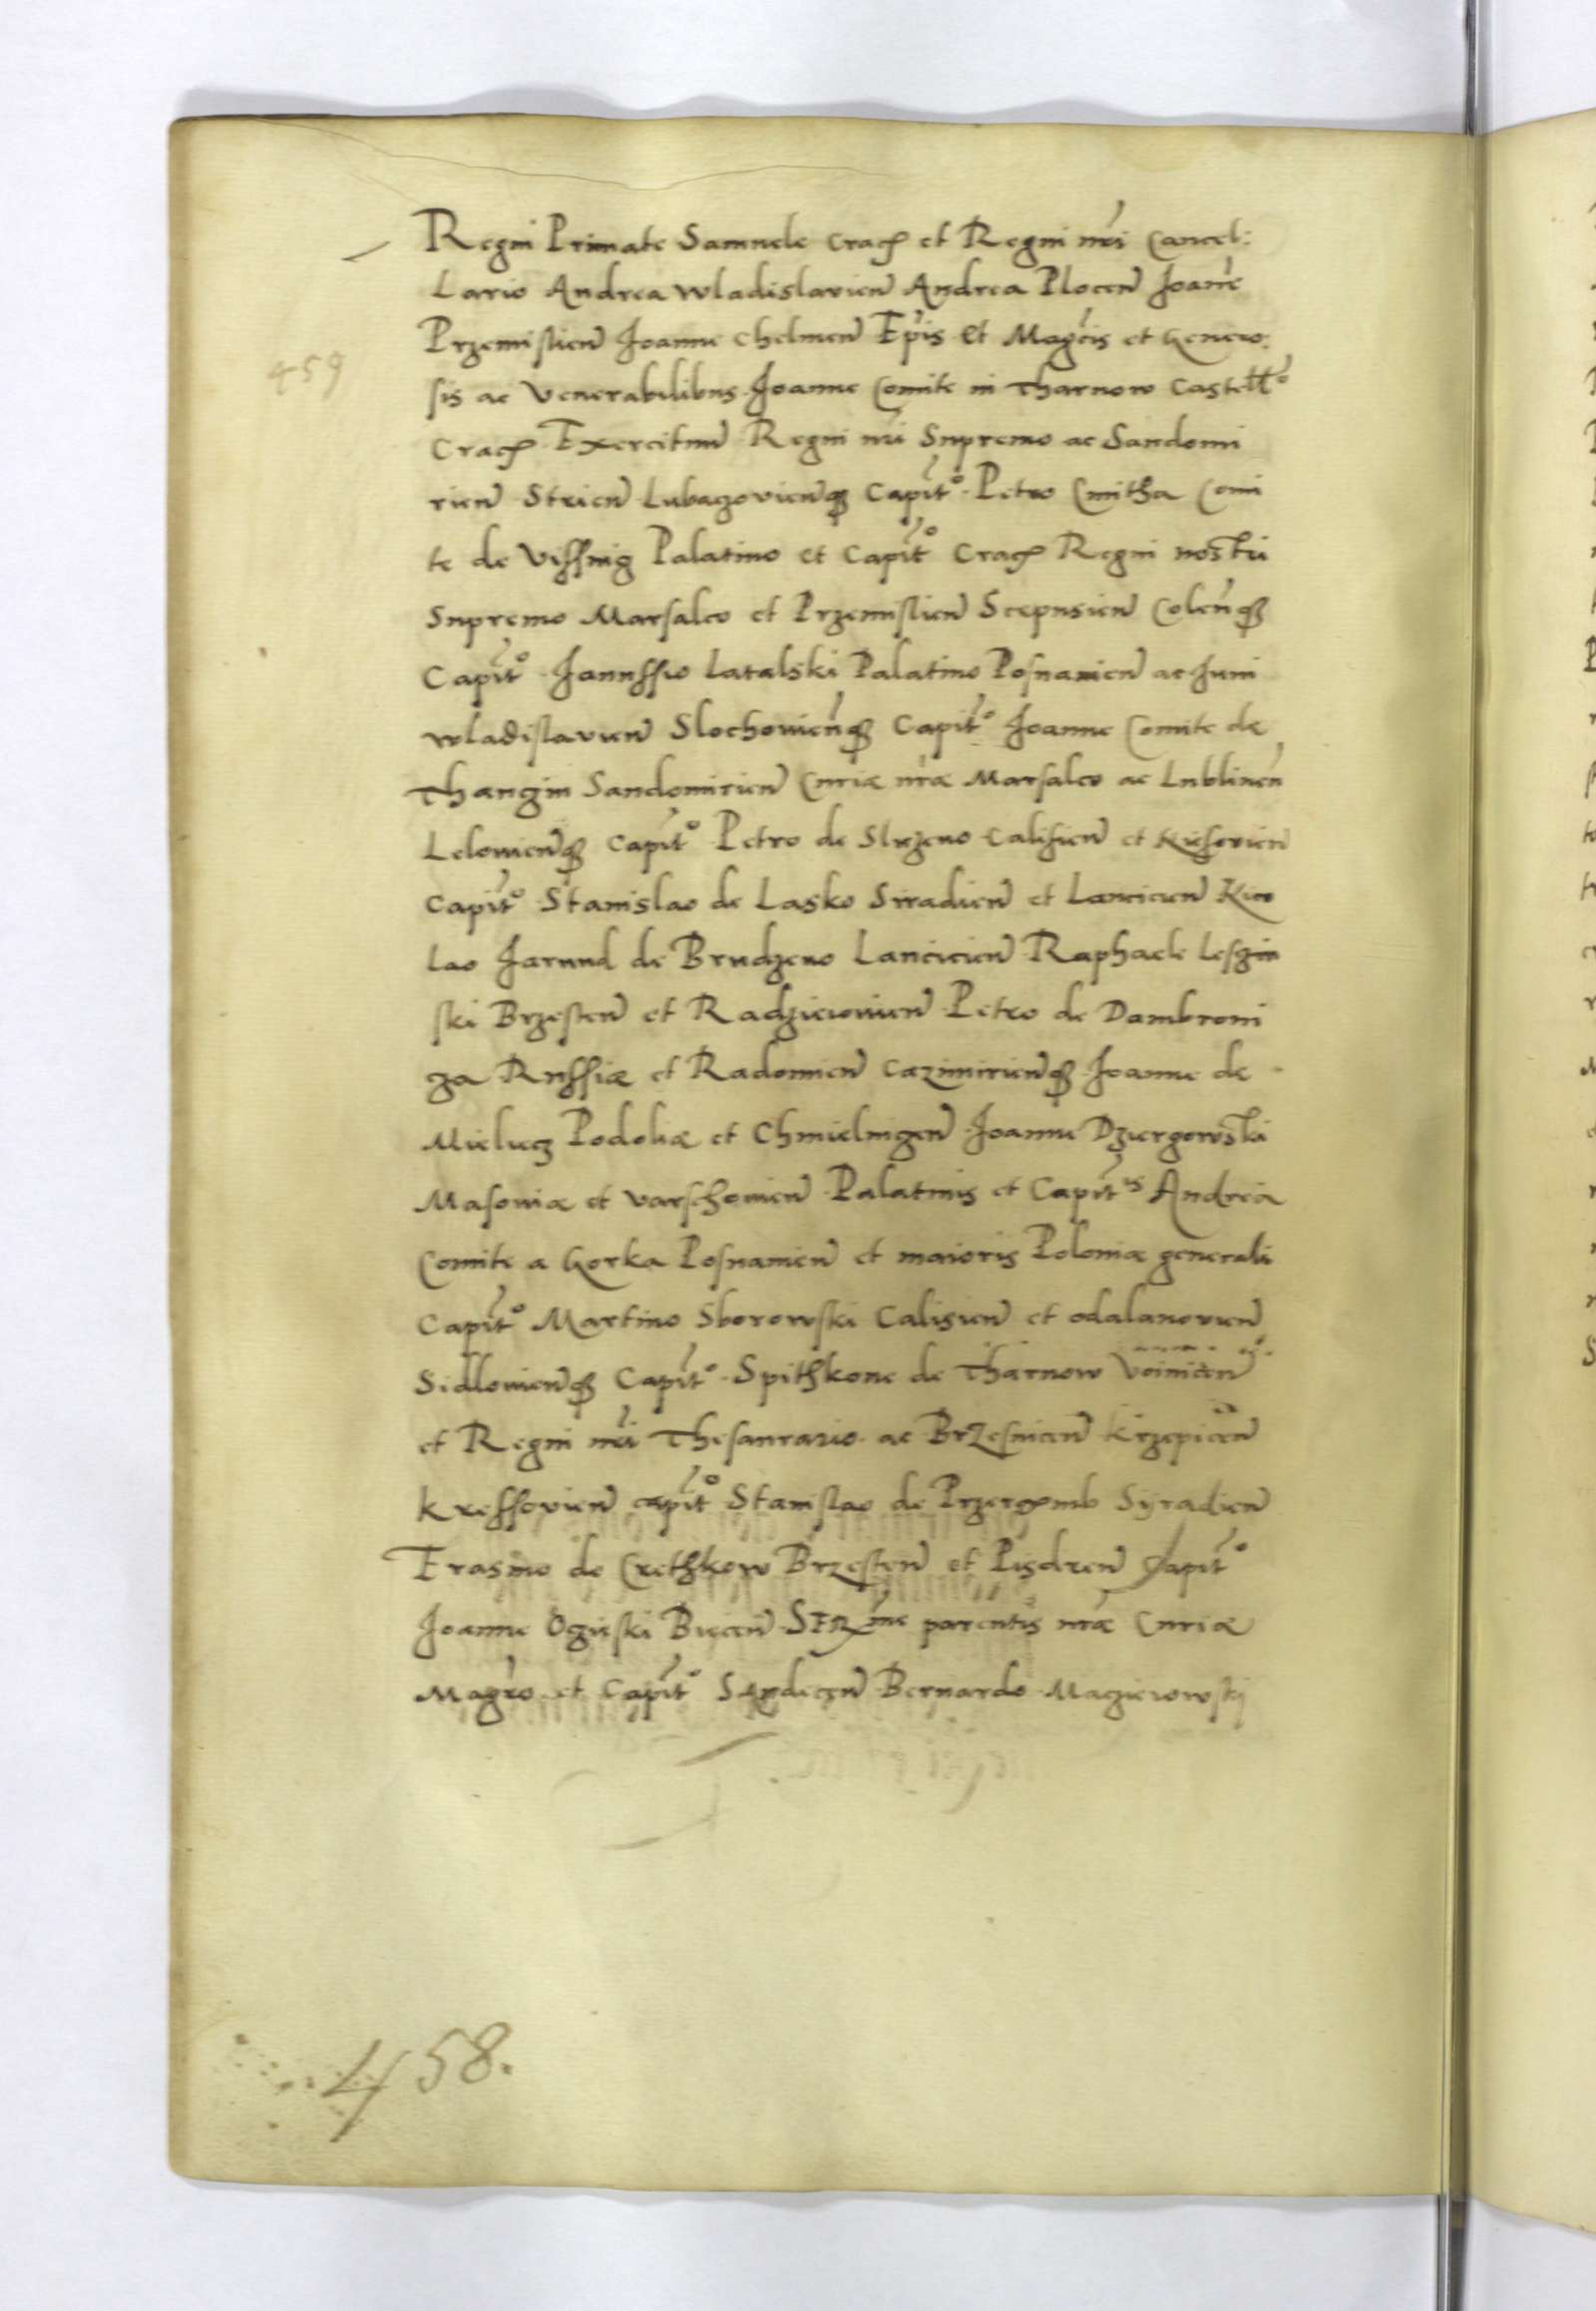 Regni Primate Samuele Crac̃ et Regni nr̃i Cancel:
lario Andrea Wladislavien̄ Andrea Plocen̄ Joan̄e
Przemislien̄ Joanne Chelmen̄ Ep̄is et Mag̃cis et Genero:
459
sis ac Venerabilibus Joanne Comite in Tharnow Castell̃o
Crac̃ Exercituu̅ Regni nr̃i Supremo ac Sandomi
rien̄ Strien̄ Lubaczovien̄q̨ Capit̃o Petro Cmitha Comi
te de Vissnig Palatino et Capit̃o Crac̃ Regni nostri
Supremo Marsalco et Przemislien̄ Scepusien̄ Colen̄q̨
Capit̃o Janussio Latalski Palatino Posnanien̄ ac Juni
wladislavien̄ Slochovien̄q̨ Capit̃o Joanne Comite de
Thanczin Sandomirien̄ Curiæ nr̃æ Marsalco ac Lublinen̄
Lelovien̄q̨ Capit̃o Petro de Sluzevo Calisien̄ et
Capit̃o Stanislao de Lasko Siradien̄ et Lancicien̄ Nico
lao Jarund de Brudzevo Lancicien̄ Raphaele Leszin
ski Brzesten̄ et Radzieiovien̄ Petro de Dambrovi
za Russiæ et Radomien̄ Cazimirien̄q̨ Joanne de
Mielecz Podoliæ et Chmielnigen̄ Joanne Dziergowski
Masoviæ et varschovien̄ Palatinis et Capit̃is Andrea
Comite a Gorka Posnanien̄ et maioris Poloniæ generali
Capit̃o Martino Sborowski Calisien̄ et odalanovien̄
Sidlovien̄q̨ Capit̃o Spithkone de Tharnow Voinicen̄
et Regni nr̃i Thesaurario ac Brzesnicen̄ Krzepicen̄
Kressovien̄ capit̃o Stanislao de Przeromb Syradien̄
Erasmo de Crethkow Brzesten̄ et Pisdren̄ Capit̃o
Joanne Oczieski Biecen̄ Ser̃me parentis nr̃æ Curiæ
Mag̃ro et Capit̃o Sandecen̄ Bernardo Macziewowskj
458.